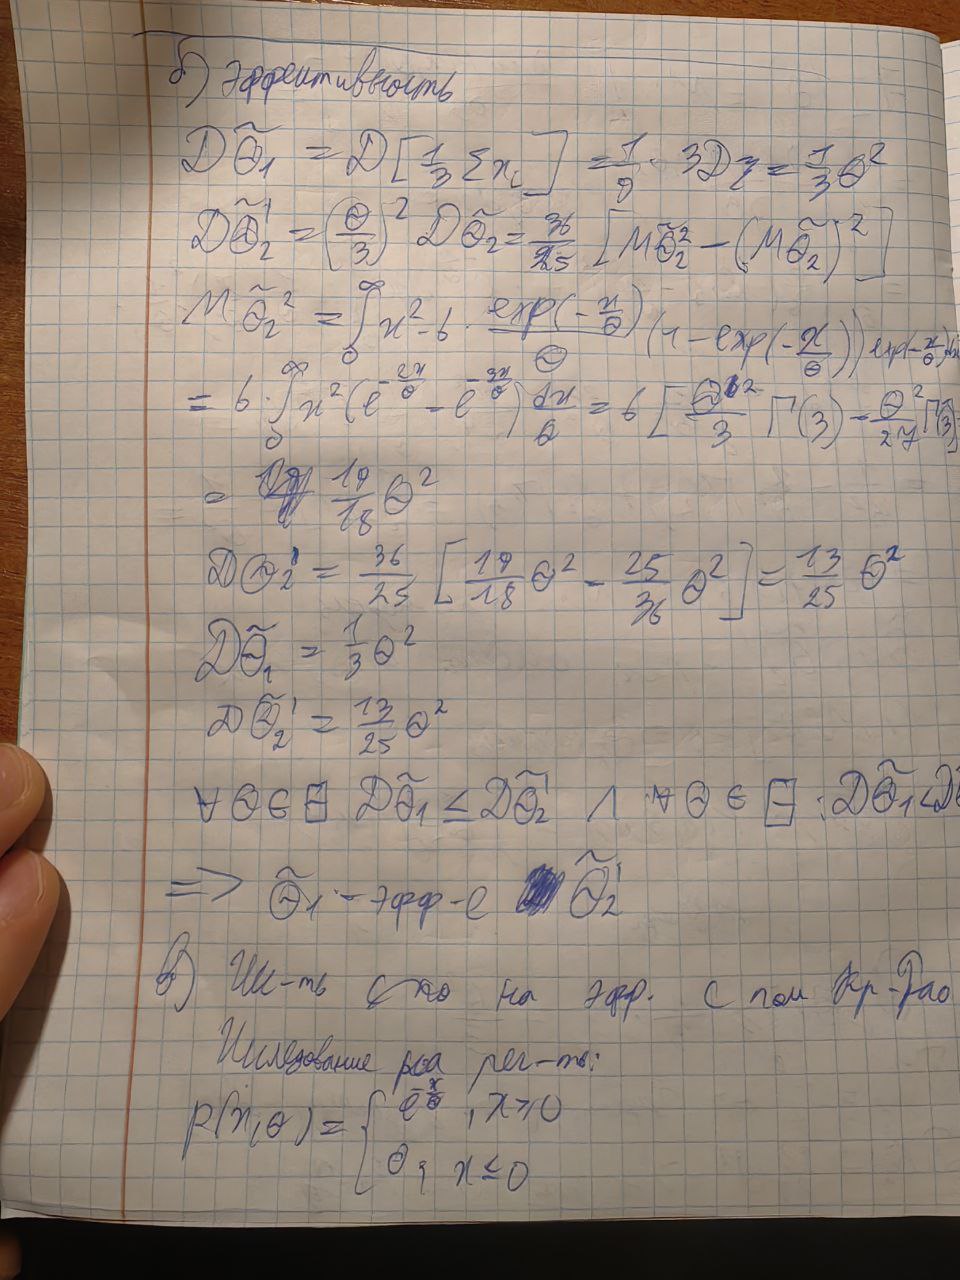 б) Эффективность
DΘ̃₁ = D[1/3 Σxᵢ] = 1/9 · 3Dξ = 1/3 Θ²
DΘ̃₂' = (Θ/3)² DΘ̃₂ = 36/25 [MΘ̃₂² − (MΘ̃₂)²]
MΘ̃₂² = ∫₀^∞ x² · 6 · exp(−x/Θ)/Θ (1 − exp(−x/Θ)) exp(−x/Θ) dx
= 6 · ∫₀^∞ x² (e^(−2x/Θ) − e^(−3x/Θ)) dx/Θ = 6 [Θ²/3 Γ(3) − Θ²/27 Γ(3)] =
= 19/18 Θ²
DΘ̃₂' = 36/25 [19/18 Θ² − 25/36 Θ²] = 13/25 Θ²
DΘ̃₁ = 1/3 Θ²
DΘ̃₂' = 13/25 Θ²
∀ Θ ∈ Θ DΘ̃₁ ≤ DΘ̃₂' ∧ ∀ Θ ∈ Θ : DΘ̃₁ <
=> Θ̃₁ − эфф-е Θ̃₂'
в) на эфф. с пом Кр-Рао
Исследование рег-ть:
p(x,Θ) = { e^(−x/Θ) , x ≥ 0
0 ; x ≤ 0